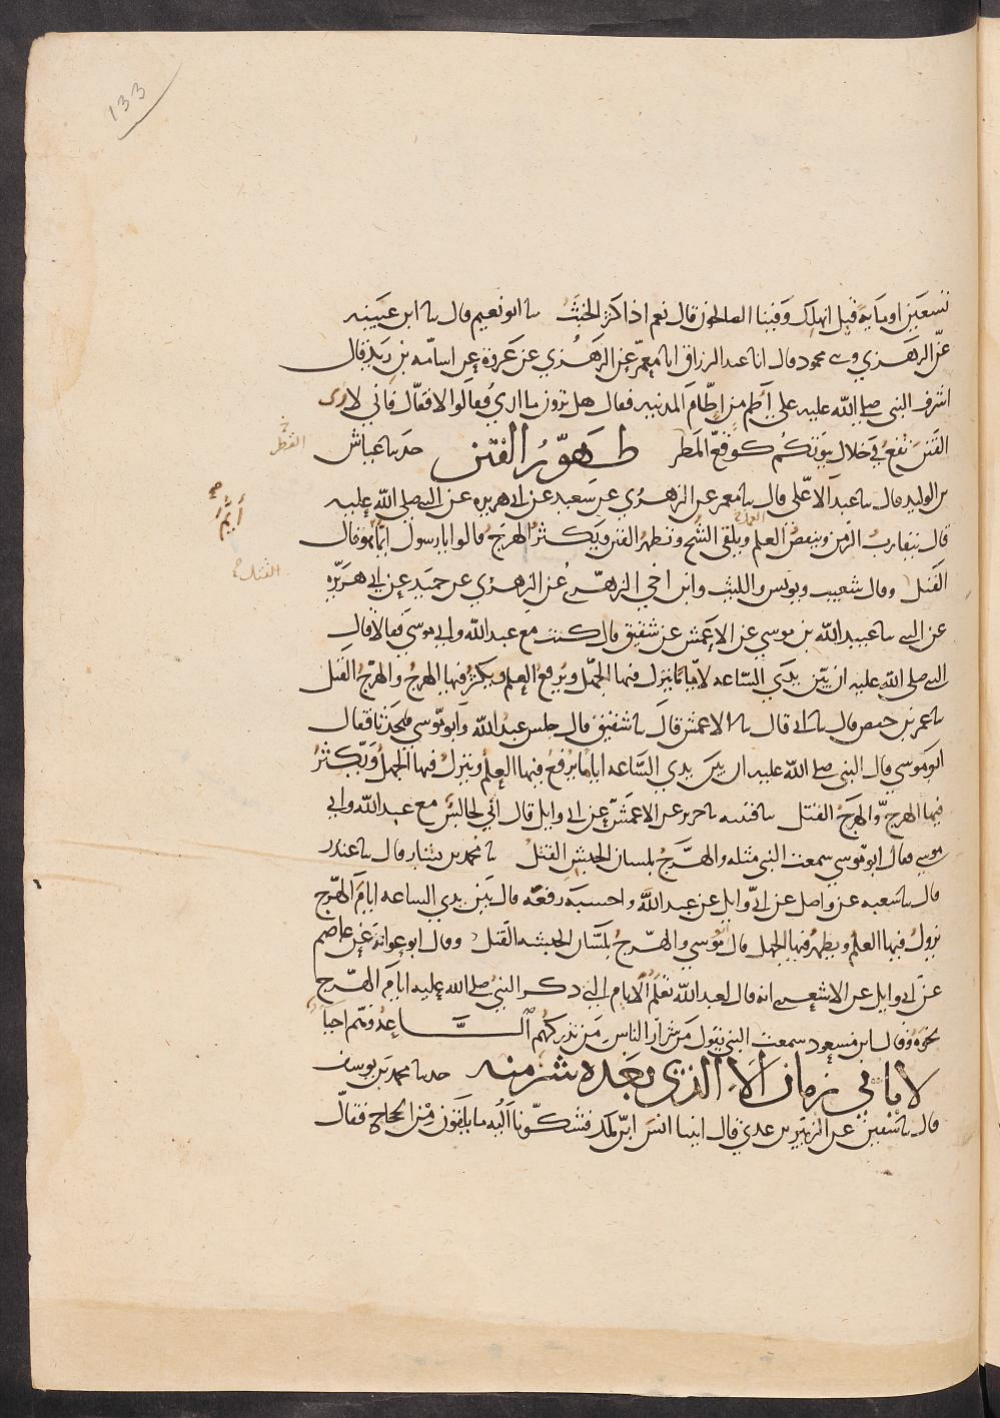 133
تسعين او مايه قيل انهلك وفينا الصالحون قال نعم اذا كثر الخبث نا ابو نعيم قال نا ابن عيينه
عن الزهري وني محمود قال انا عبد الرزاق انا معمر عن الزهري عن عروة عن اسامه بن زيد قال
اشرف النبي صلي الله عليه علي اطم من اطام المدينه فقال هل ترون ما اري قالوا لا قال فاني لاري
الفتن تقع في خلال بيوتكم كوقع المطر ظهور الفتن حدثنا عياش
القطر
بن الوليد قال نا عبد الاعلي قال نا معمر عن الزهري عن سعيد عن ابي هريره عن النبي صلي الله عليه
قال يتقارب الزمن وينقص العلم ويلقي الشح وتظهر الفتن ويكثر الهرج قالوا يا رسول الله ايما هو قال
العمل
ايم
القتل وقال شعيب ويونس والليث وابن اخي الزهري عن الزهري عن حميد عن ابي هريره
القتل
عن النبي نا عبيد الله بن موسي عن الاعمش عن شقيق قال كنت مع عبد الله وابي موسي فقالا قال
النبي صلي الله عليه ان بين يدي الساعه لاياما ينزل فيها الجهل ويرفع العلم ويكثر فيها الهرج والهرج القتل
نا عمر بن حفص قال نا ابي قال نا الاعمش قال نا شقيق قال جلس عبد الله وابو موسي فتحدثا فقال
ابو موسي قال النبي صلي الله عليه ان بين يدي الساعه اياما يرفع فيها العلم وينزل فيها الجهل ويكثر
فيها الهرج والهرج القتل نا قتيبه نا جرير عن الاعمش عن ابي وايل قال اني لجالس مع عبد الله وابي
موسي فقال ابو موسي سمعت النبي مثله والهرج بلسان الحبش القتل نا محمد بن بشار قال نا غندر
قال نا شعبه عن واصل عن ابي وايل عن عبد الله واحسبه رفعه قال بين يدي الساعه ايام الهرج
يزول فيها العلم ويظهر فيها الجهل قال ابو موسي والهرج بلسان الحبشه القتل وقال ابو عوانه عن عاصم
عن ابي وايل عن الاشعري انه قال لعبد الله تعلم الايام التي ذكر النبي صلي الله عليه ايام الهرج
نحوه وقال ابن مسعود سمعت النبي يقول من شرار الناس من تدركهم الساعه وهم احيا
لا ياتي زمان الا الذي بعده شر منه حدثنا محمد بن يوسف
قال نا سفين عن الزبير بن عدي قال اتينا انس ابن ملك فشكونا اليه ما يلقون من الحجاج فقال